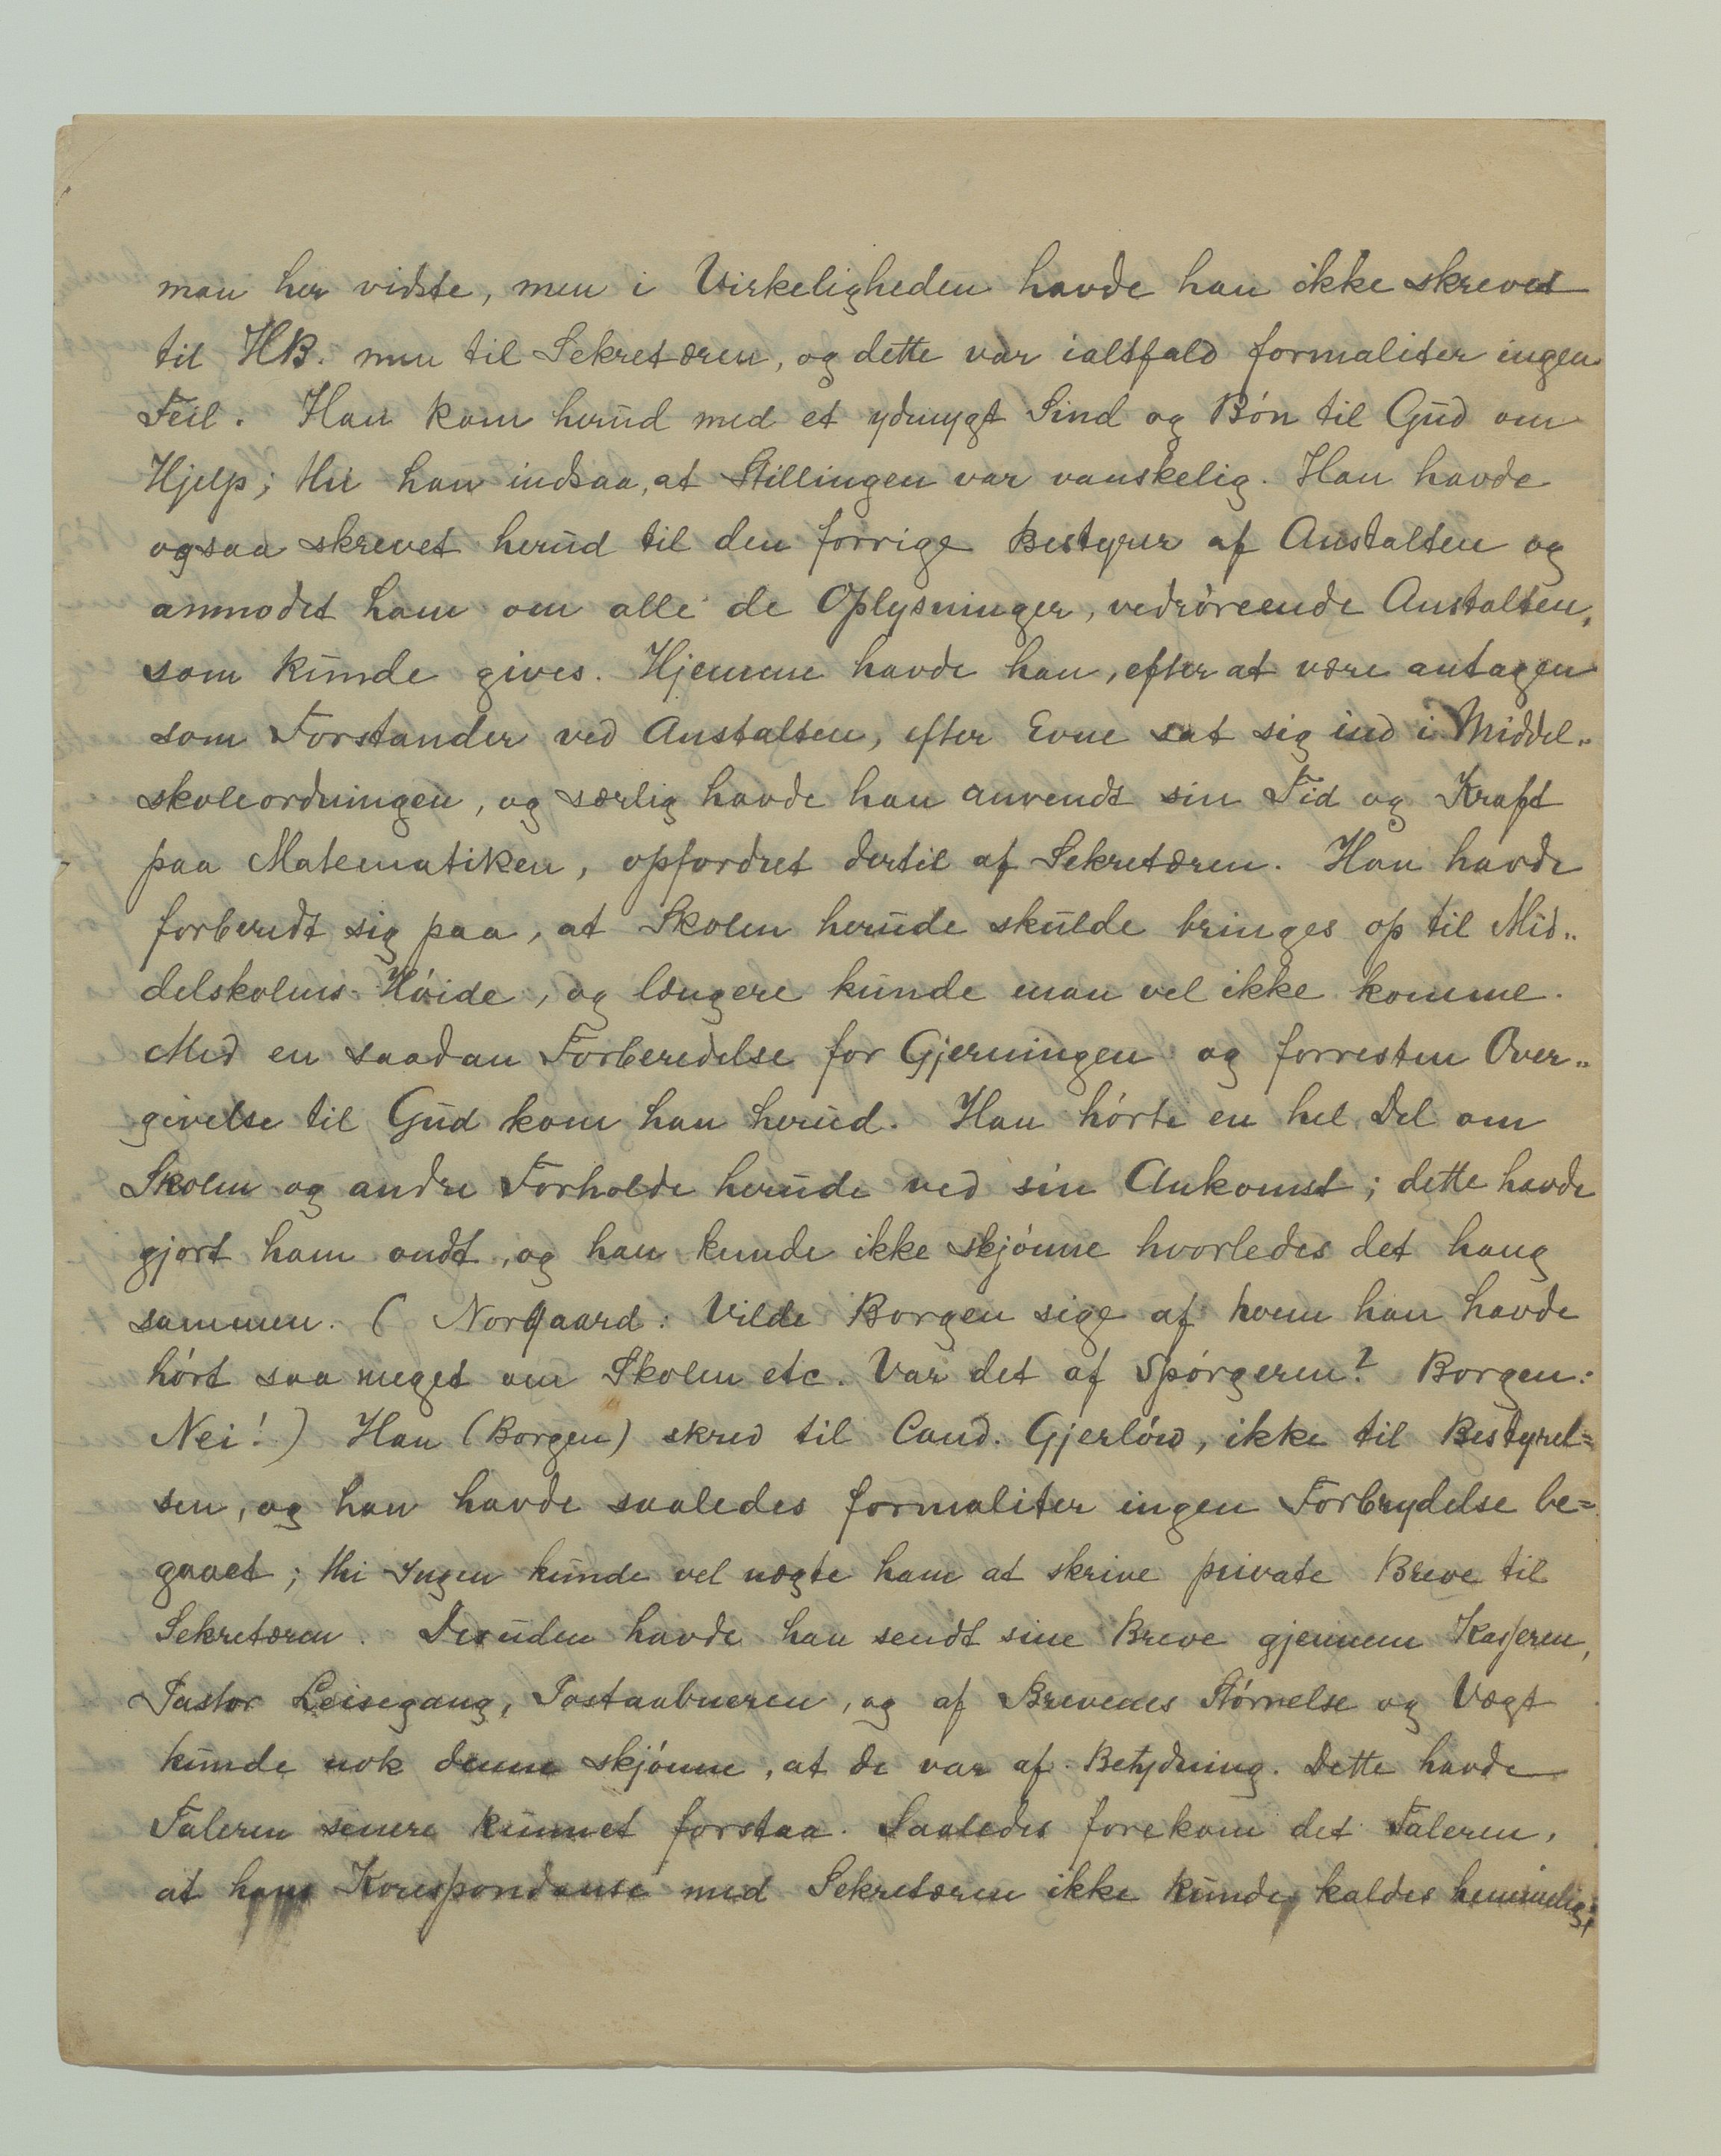 man her vidste, men i Virkeligheden havde han ikke skrevet
til HB. men til Sekretæren, og dette var ialtfald formaliter ingen
Feil. Han kom herud med et ydmygt Sind og Bón til Gud om
Hjelp; thi han indsaa, at Stillingen var vanskelig. Han havde
ogsaa skrevet herud til den forrige Bestyrer af Anstalten og
anmodet ham om alle de Oplysninger, vedróreende Anstalten,
som kunde gives. Hjemme havde han, efter at være antagen
som Forstander ved Anstalten, efter Evne sat sig ind i Middel„
skoleordningen, og særlig havde han anvendt sin Tid og Kraft
paa Matematiken, opfordret dertil af Sekretæren. Han havde
forberedt sig paa, at Skolen herude skulde bringes op til Mid„
delskolens Hóide, og længere kunde man vel ikke komme.
Med en saadan Forberedelse for Gjerningen og forresten Over„
givelse til Gud kom han herud. Han hórte en hel Del om
Skolen og andre Forholde herude ved sin Ankomst; dette havde
gjort ham ondt, og han kunde ikke skjónne hvorledes det hang
sammen. (Norgaard: Vilde Borgen sige af hvem han havde
hórt saa meget om Skolen etc. Var det af Spórgeren? Borgen:
Nei!) Han (Borgen) skrev til Cand. Gjerlów, ikke til Bestyrel=
sen, og han havde saaledes formaliter ingen Forbrydelse be=
gaaet; thi Ingen kunde vel nægte ham at skrive private Breve til
Sekretæren. Desuden havde han sendt sine Breve gjennem Kasseren,
Pastor Leisegang, Postaabneren, og af Brevenes Stórrelse og Vægt
kunde nok denne skjónne, at de var af Betydning. Dette havde
Taleren senere kunnet forstaa. Saaledes forekom det Taleren,
at hans Korespondanse med Sekretæren ikke kunde kaldes hemmelig;